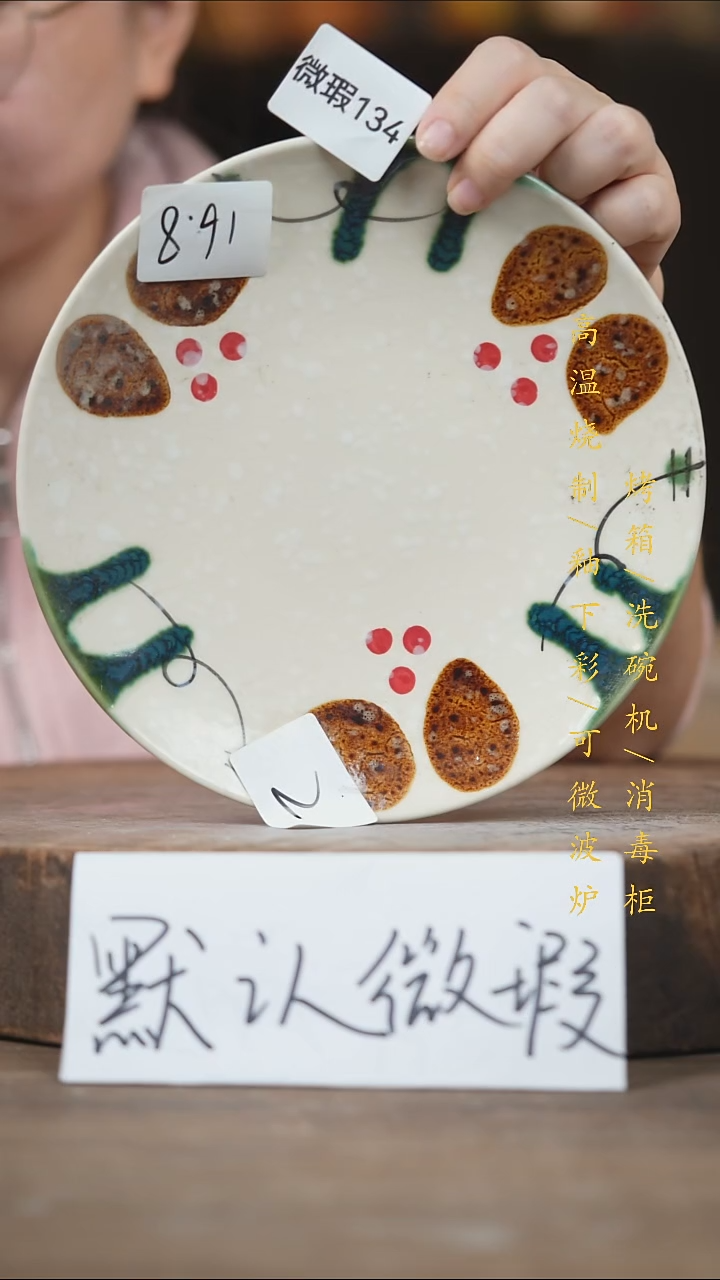 微瑕134
8.91
2
高温烧制/釉下彩/可微波炉
烤箱/洗碗机/消毒柜
默认微瑕